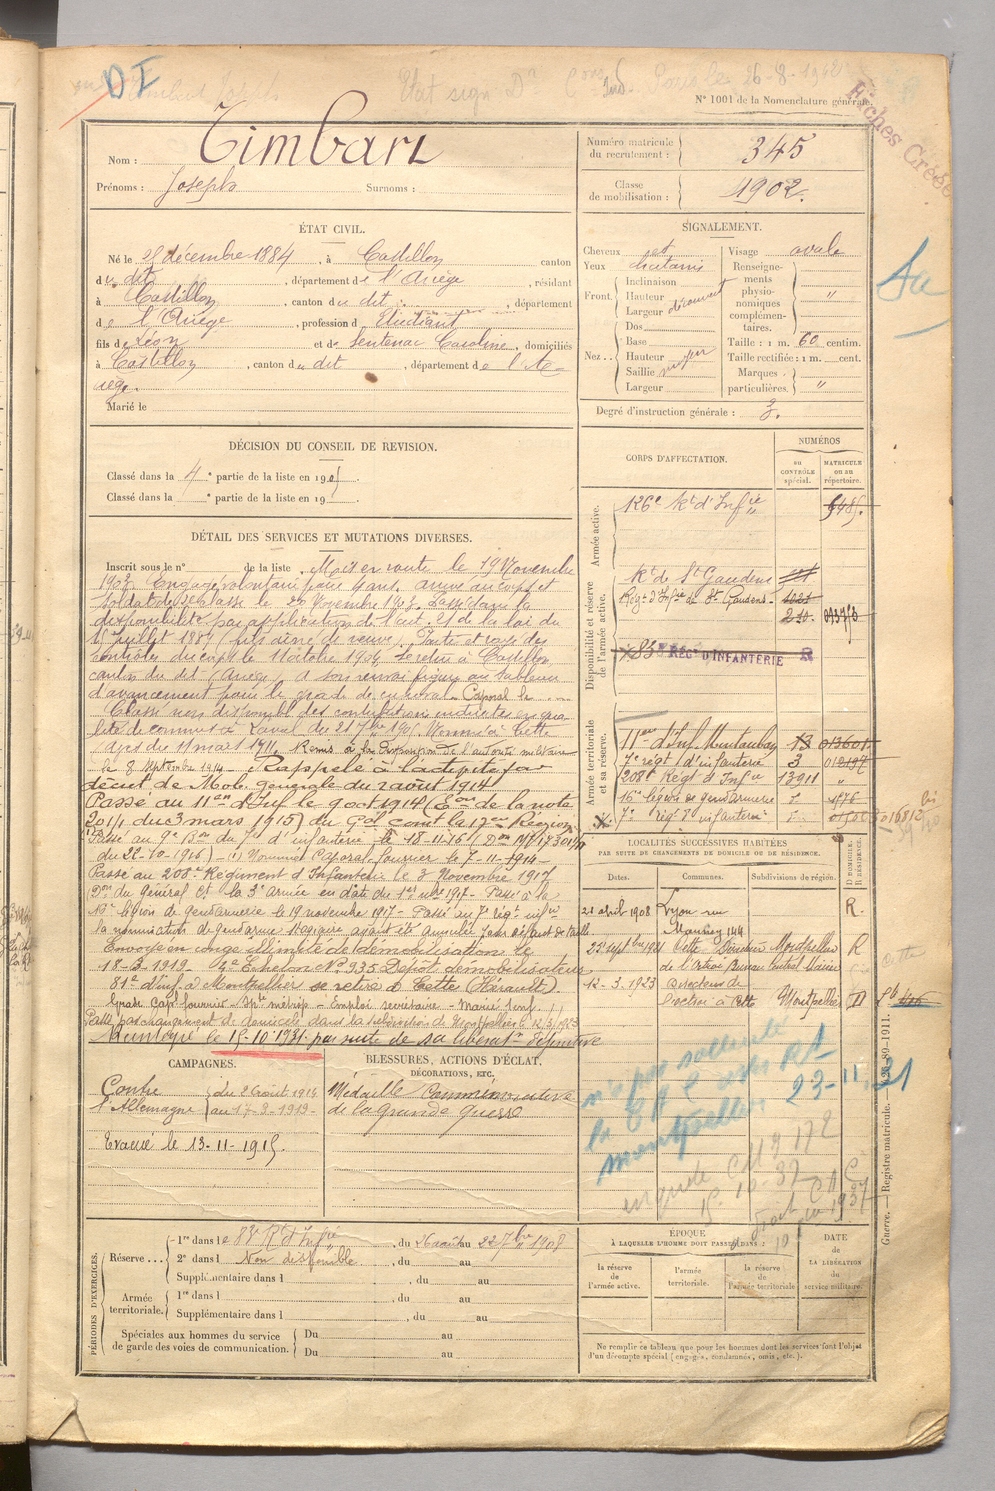 DI
Etat sign. 26-8-1942
N° 1001 de la Nomenclature générale.
Fiches Créée
Nom : Timbart
Prénoms : Joseph Surnoms :
Numéro matricule du recrutement : 345
Classe de mobilisation : 1902.
ÉTAT CIVIL.
Né le 25 décembre 1884, à Castillon canton
du dit, département de l'Ariège, résidant
à Castillon, canton du dit, département
de l'Ariège, profession d Etudiant
fils de Léon et de Sentenac Caroline, domiciliés
à Castillon, canton du dit, département de l'A-
riège.
Marié le
SIGNALEMENT.
Cheveux et
Yeux chatains
Front. Inclinaison
Hauteur
Largeur découvert
Dos
Nez.. Base
Hauteur
Saillie moyen
Largeur
Visage ovale
Renseignements physionomiques complémentaires. "
Taille : 1 m. 60 centim.
Taille rectifiée : 1 m. cent.
Marques particulières. "
Degré d'instruction générale : 3.
DÉCISION DU CONSEIL DE REVISION.
Classé dans la 4e partie de la liste en 1905.
Classé dans la e partie de la liste en 19
DÉTAIL DES SERVICES ET MUTATIONS DIVERSES.
Inscrit sous le n° de la liste Mis en route le 19 Novembre
1903. Engagé volontaire pour 4 ans. arrivé au corps et
soldat de 2e classe le 20 Novembre 1903. Passé dans la
disponibilité par application de l'art. 21 de la loi du
15 Juillet 1889 (fils aîné de veuve). Porté et rayé des
contrôles du corps le 11 octobre 1904. Se retire à Castillon
canton du dit (Ariège). A son renvoi figure au tableau
d'avancement pour le grade de caporal. Caporal le
Classé non disponible des contributions indirectes en qua-
lité de commis à Laval du 21 7bre 1905. Nommé à Cette
Après du 11 mars 1911. Remis à la disposition de l'autorité militaire
le 8 septembre 1914 - Rappelé à l'activité par
décret de Mob. générale du 2 août 1914
Passé au 11eme d'Inf. le 9 oct 1914 (Eon de la note
201/1 du 3 mars 1915) du Gal comt la 17eme Région
Passé au 9e Bon du 7e d'infanterie le 18-11-16 (Don
du 22-10-1916) - (1) Nommé Caporal fourrier le 7-11-1914 -
Passé au 208e Régiment d'Infanterie le 3 Novembre 1917
Don du Général Ct la 3e armée en date du 1er 1917 - Passé à la
16e légion de gendarmerie le 19 novembre 1917 - Passé au 7e régt inf.ie
la nomination de gendarme stagiaire ayant été annulée pour défaut de taille.
Envoyé en congé illimité de démobilisation le
18-3-1919 - 4e Echelon N° 335 Dépôt démobilisateur
81e d'inf. à Montpellier se retire à Cette (Hérault).
Grade Capl fourrier - Emploi secrétaire - Marié 1 enf.
Passé par changement de domicile dans la subdivision de Montpellier le 12.3.1923
le 15-10-1931 par suite de sa libération définitive
CORPS D'AFFECTATION.
NUMÉROS
au CONTRÔLE spécial.
MATRICULE ou au répertoire.
Armée active.
126e Rt d'Infie 5485.
Disponibilité et réserve de l'armée active.
Rt de St Gaudens
Régt d'Infie de St Gaudens
83e RÉGt D'INFANTERIE R
Armée territoriale et sa réserve.
11eme d'Inf. Montauban 13 013601
7e régt d'infanterie 3
208e Régt d'Infie 13911 "
16e légion de gendarmerie
7e régt d'infanterie 016812
LOCALITÉS SUCCESSIVES HABITÉES
PAR SUITE DE CHANGEMENTS DE DOMICILE OU DE RÉSIDENCE.
Dates. Communes. Subdivisions de région. D. DOMICILE. R. RÉSIDENCE.
21 avril 1908 Lyon rue R.
Mauhey 144
22 septbre 1921 Cette Directeur Montpellier R
de l'Octroi Bureau Central Mairie
12-3.1923 Directeur de
l'octroi à Cette Montpellier D
CAMPAGNES.
Contre l'Allemagne du 2 août 1914
au 17-3-1919-
Evacué le 13-11-1915.
BLESSURES, ACTIONS D'ÉCLAT,
DÉCORATIONS, ETC.
Médaille Commémorative
de la grande guerre
n'a pas sollicité
la C
Montpellier 23-11-31
15.10-37
Guerre. — Registre matricule. — 26-89-1911.
PÉRIODES D'EXERCICES.
Réserve ... 1re dans le 83e Rt d'Infie, du 26 août au 22 7bre 1908
2e dans l Non disponible, du au
Supplémentaire dans l, du au
Armée territoriale. 1re dans l, du au
Supplémentaire dans l, du au
Spéciales aux hommes du service de garde des voies de communication. Du au
Du au
ÉPOQUE
À LAQUELLE L'HOMME DOIT PASSER DANS :
la réserve de l'armée active.
l'armée territoriale.
la réserve de l'armée territoriale.
DATE DE LA LIBÉRATION du service militaire.
Ne remplir ce tableau que pour les hommes dont les services font l'objet
d'un décompte spécial (engagés, condamnés, omis, etc.).